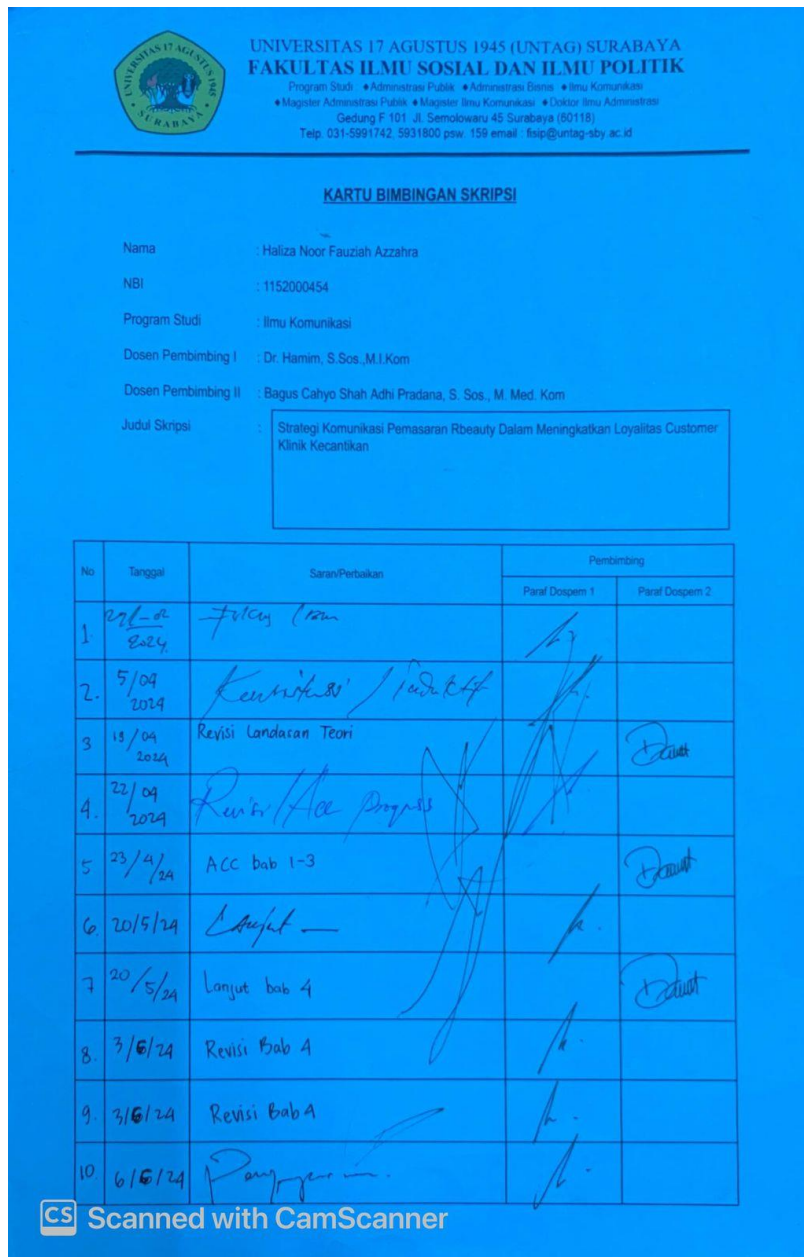 UNIVERSITAS 17 AGUSTUS 1945
SURABAYA
UNIVERSITAS 17 AGUSTUS 1945 (UNTAG) SURABAYA
FAKULTAS ILMU SOSIAL DAN ILMU POLITIK
Program Studi : ♦Administrasi Publik ♦Administrasi Bisnis ♦Ilmu Komunikasi
♦Magister Administrasi Publik ♦Magister Ilmu Komunikasi ♦Doktor Ilmu Administrasi
Gedung F 101 Jl. Semolowaru 45 Surabaya (60118)
Telp. 031-5991742, 5931800 psw. 159 email : fisip@untag-sby.ac.id
KARTU BIMBINGAN SKRIPSI
Nama : Haliza Noor Fauziah Azzahra
NBI : 1152000454
Program Studi : Ilmu Komunikasi
Dosen Pembimbing I : Dr. Hamim, S.Sos.,M.I.Kom
Dosen Pembimbing II : Bagus Cahyo Shah Adhi Pradana, S. Sos., M. Med. Kom
Judul Skripsi : Strategi Komunikasi Pemasaran Rbeauty Dalam Meningkatkan Loyalitas Customer
Klinik Kecantikan
No Tanggal Saran/Perbaikan Pembimbing
Paraf Dospem 1 Paraf Dospem 2
1. 2024
2. 5/04 2024
3 /04 2024 Revisi Landasan Teori
4. 22/04 2024 Revisi/Acc
5 23/4/24 ACC bab 1-3
6. 20/5/24 Lanjut
7 20/5/24 Lanjut bab 4
8. 3/6/24 Revisi Bab 4
9. 3/6/24 Revisi Bab 4
10. 6/6/24
CS Scanned with CamScanner